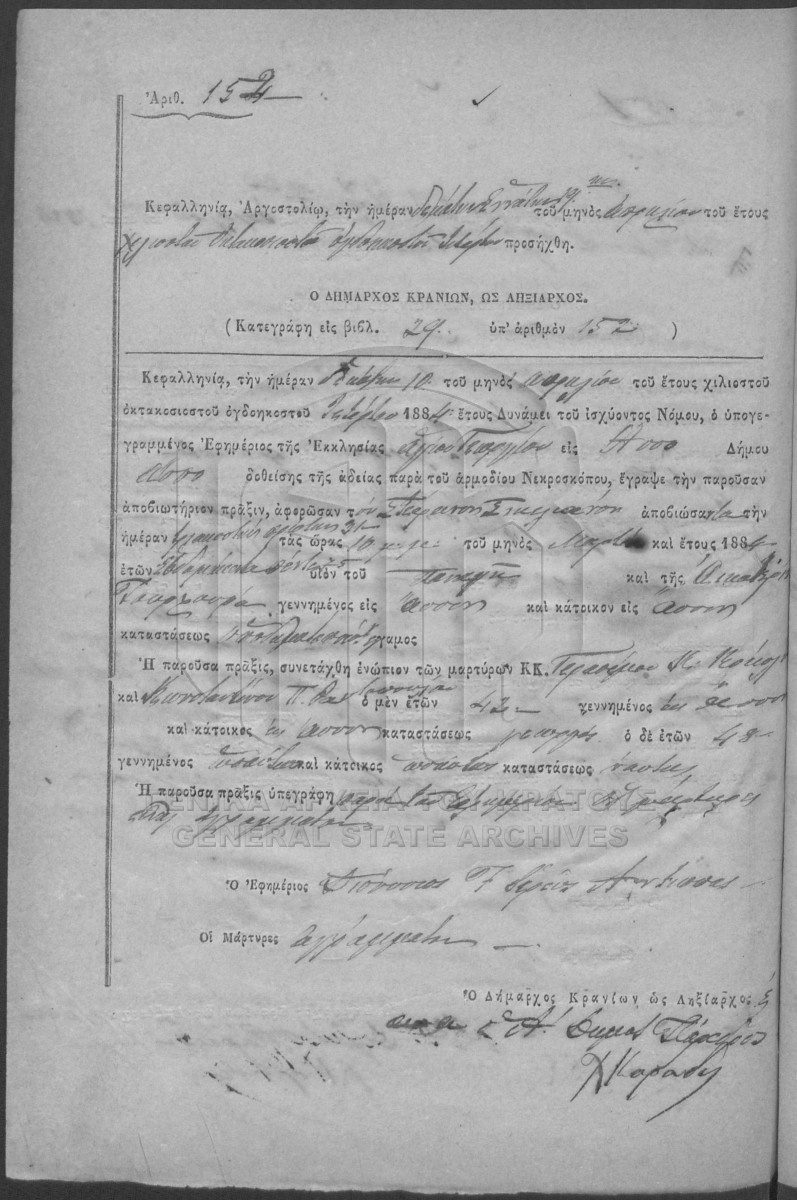 Ἀριθ. 152
Κεφαλληνίᾳ, Ἀργοστολίῳ, τὴν ἡμέραν δεκάτην ἐννάτην 19 τοῦ μηνὸς Ἀπριλίου τοῦ ἔτους
χιλιοστοῦ ὀκτακοσιοστοῦ ὀγδοηκοστοῦ τετάρτου προσήχθη.
Ο ΔΗΜΑΡΧΟΣ ΚΡΑΝΙΩΝ, ΩΣ ΛΗΞΙΑΡΧΟΣ.
(Κατεγράφη εἰς βιβλ. 29. ὑπ' ἀριθμὸν 152)
Κεφαλληνίᾳ, τὴν ἡμέραν δεκάτην 10 τοῦ μηνὸς Ἀπριλίου τοῦ ἔτους χιλιοστοῦ
ὀκτακοσιοστοῦ ὀγδοηκοστοῦ τετάρτου 1884 ἔτους Δυνάμει τοῦ ἰσχύοντος Νόμου, ὁ ὑπογε-
γραμμένος Ἐφημέριος τῆς Ἐκκλησίας Ἁγίου Γεωργίου εἰς Ἄσσο Δήμου
Ἄσσο δοθείσης τῆς ἀδείας παρὰ τοῦ ἁρμοδίου Νεκροσκόπου, ἔγραψε τὴν παροῦσαν
ἀποβιωτήριον πρᾶξιν, ἀφορῶσαν τὸν ἀποβιώσαντα τὴν
ἡμέραν τριακοστήν πρώτην 31 τὰς ὥρας 10 π.μ. τοῦ μηνὸς Μαρτίου καὶ ἔτους 1884
ἐτῶν ἑβδομήκοντα πέντε 75 υἱὸν τοῦ Παναγῆ καὶ τῆς Αἰκατερίνης
γεννημένος εἰς Ἄσσον καὶ κάτοικον εἰς Ἄσσον
καταστάσεως ἄγαμος
Ἡ παροῦσα πρᾶξις, συνετάχθη ἐνώπιον τῶν μαρτύρων ΚΚ. Γερασίμου Κ.
καὶ Κωνσταντίνου Π. ὁ μὲν ἐτῶν 42 γεννημένος εἰς Ἄσσον
καὶ κάτοικος εἰς Ἄσσον καταστάσεως γεωργός ὁ δὲ ἐτῶν 48
γεννημένος ὡσαύτως καὶ κάτοικος ὡσαύτως καταστάσεως ναύτης
Ἡ παροῦσα πρᾶξις ὑπεγράφη παρὰ τοῦ Ἐφημερίου οἱ μάρτυρες
ἀγράμματοι
ΓΕΝΙΚΑ ΑΡΧΕΙΑ ΤΟΥ ΚΡΑΤΟΥΣ
GENERAL STATE ARCHIVES
Ὁ Ἐφημέριος Διονύσιος Ἱερεύς
Οἱ Μάρτυρες ἀγράμματοι
Ὁ Δήμαρχος Κρανίων ὡς Ληξίαρχος
ὁ Α΄ Δημ. Πάρεδρος